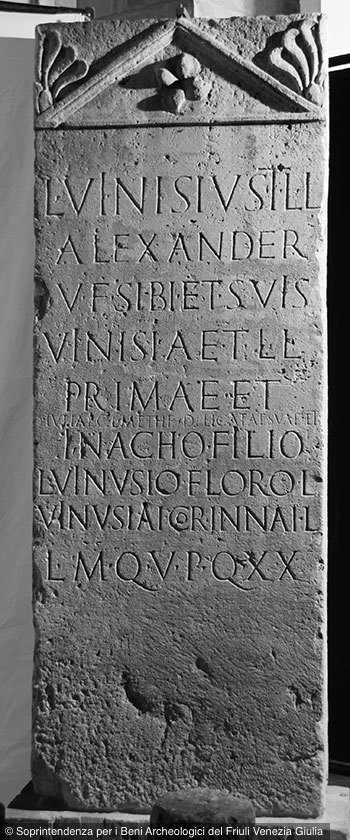 L·VINISIVS·I L L
ALEXANDER
V·F·SIBI·ET·SVIS
VINISIAE·T·L·L
PRIMAE·ET
INACHO·FILIO
L·VINVSIO·FLORO·L
VINVSIAI·CORINNAI·L
L·M·Q·V·P·Q·XX
© Soprintendenza per i Beni Archeologici del Friuli Venezia Giulia